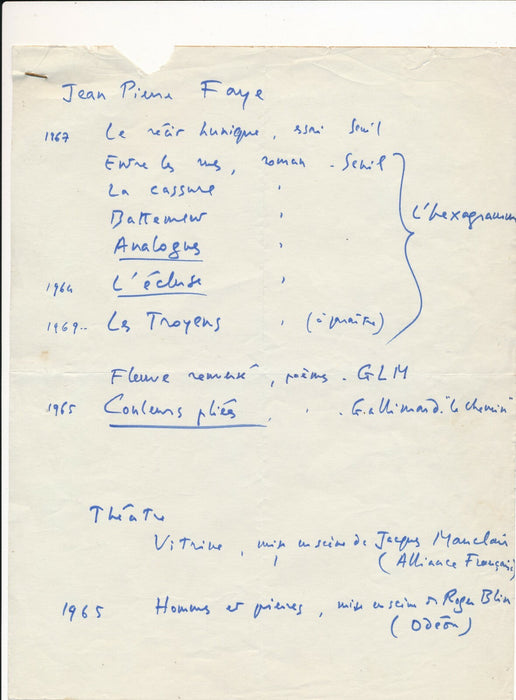 Jean Pierre Faye
1967 Le récit hunique, essai Seuil
Entre les rues, roman - Seuil
La cassure "
Battement "
Analogues "
1964 L'écluse "
1969.. Les Troyens " (à paraître)
L'hexagramme
Fleuve renversé, poèmes - GLM
1965 Couleurs pliées, " - Gallimard "le chemin"
Théâtre
Vitrine, mise en scène de Jacques Mauclair
(Alliance Française)
1965 Hommes et pierres, mise en scène de Roger Blin
(Odéon)